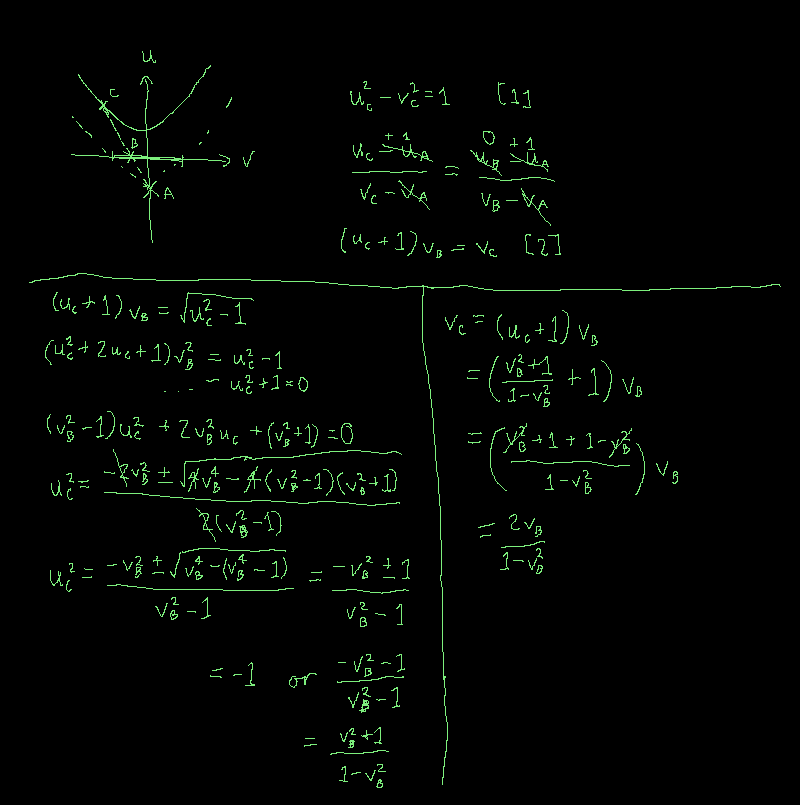 u
C
B
V
A
u_C^2 - v_C^2 = 1 [1]
\frac{u_C \cancel{- u_A}^{+1}}{v_C - \cancel{v_A}} = \frac{\cancel{u_B}^{0} \cancel{- u_A}^{+1}}{v_B - \cancel{v_A}}
(u_C + 1) v_B = v_C [2]
(u_C + 1) v_B = \sqrt{u_C^2 - 1}
(u_C^2 + 2u_C + 1) v_B^2 = u_C^2 - 1
... - u_C^2 + 1 = 0
(v_B^2 - 1) u_C^2 + 2v_B^2 u_C + (v_B^2 + 1) = 0
u_C^2 = \frac{-\cancel{2}v_B^2 ± \sqrt{\cancel{4}v_B^4 - \cancel{4}(v_B^2 - 1)(v_B^2 + 1)}}{\cancel{2}(v_B^2 - 1)}
u_C^2 = \frac{-v_B^2 ± \sqrt{v_B^4 - (v_B^4 - 1)}}{v_B^2 - 1} = \frac{-v_B^2 ± 1}{v_B^2 - 1}
= -1 or \frac{-v_B^2 - 1}{v_B^2 - 1}
= \frac{v_B^2 + 1}{1 - v_B^2}
v_C = (u_C + 1) v_B
= (\frac{v_B^2 + 1}{1 - v_B^2} + 1) v_B
= (\frac{\cancel{v_B^2} + 1 + 1 - \cancel{v_B^2}}{1 - v_B^2}) v_B
= \frac{2v_B}{1 - v_B^2}